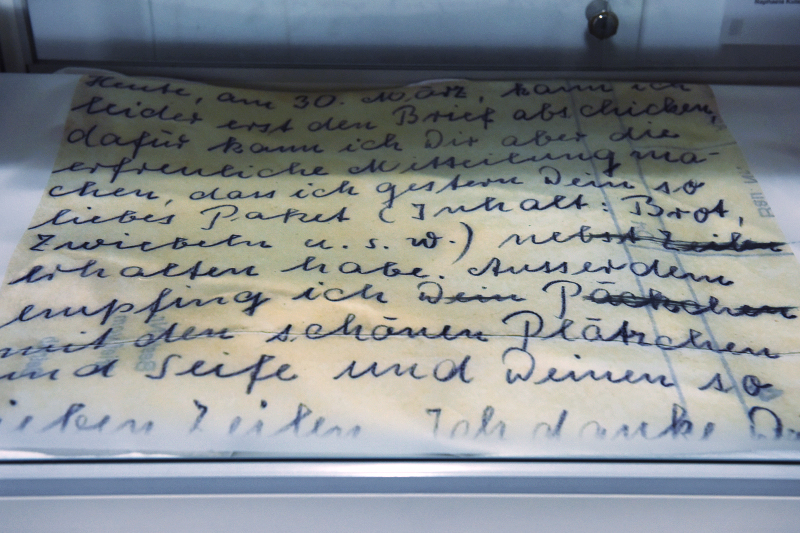 Heute, am 30. März, kann ich
leider erst den Brief abschicken,
dafür kann ich Dir aber die
erfreuliche Mitteilung ma-
chen, dass ich gestern Dein so
liebes Paket (Inhalt: Brot,
Zwiebeln u. s. w.) nebst Zeilen
erhalten habe. Ausserdem
empfing ich Dein Päckchen
mit den schönen Plätzchen
und Seife und Deinen so
lieben Zeilen. Ich danke